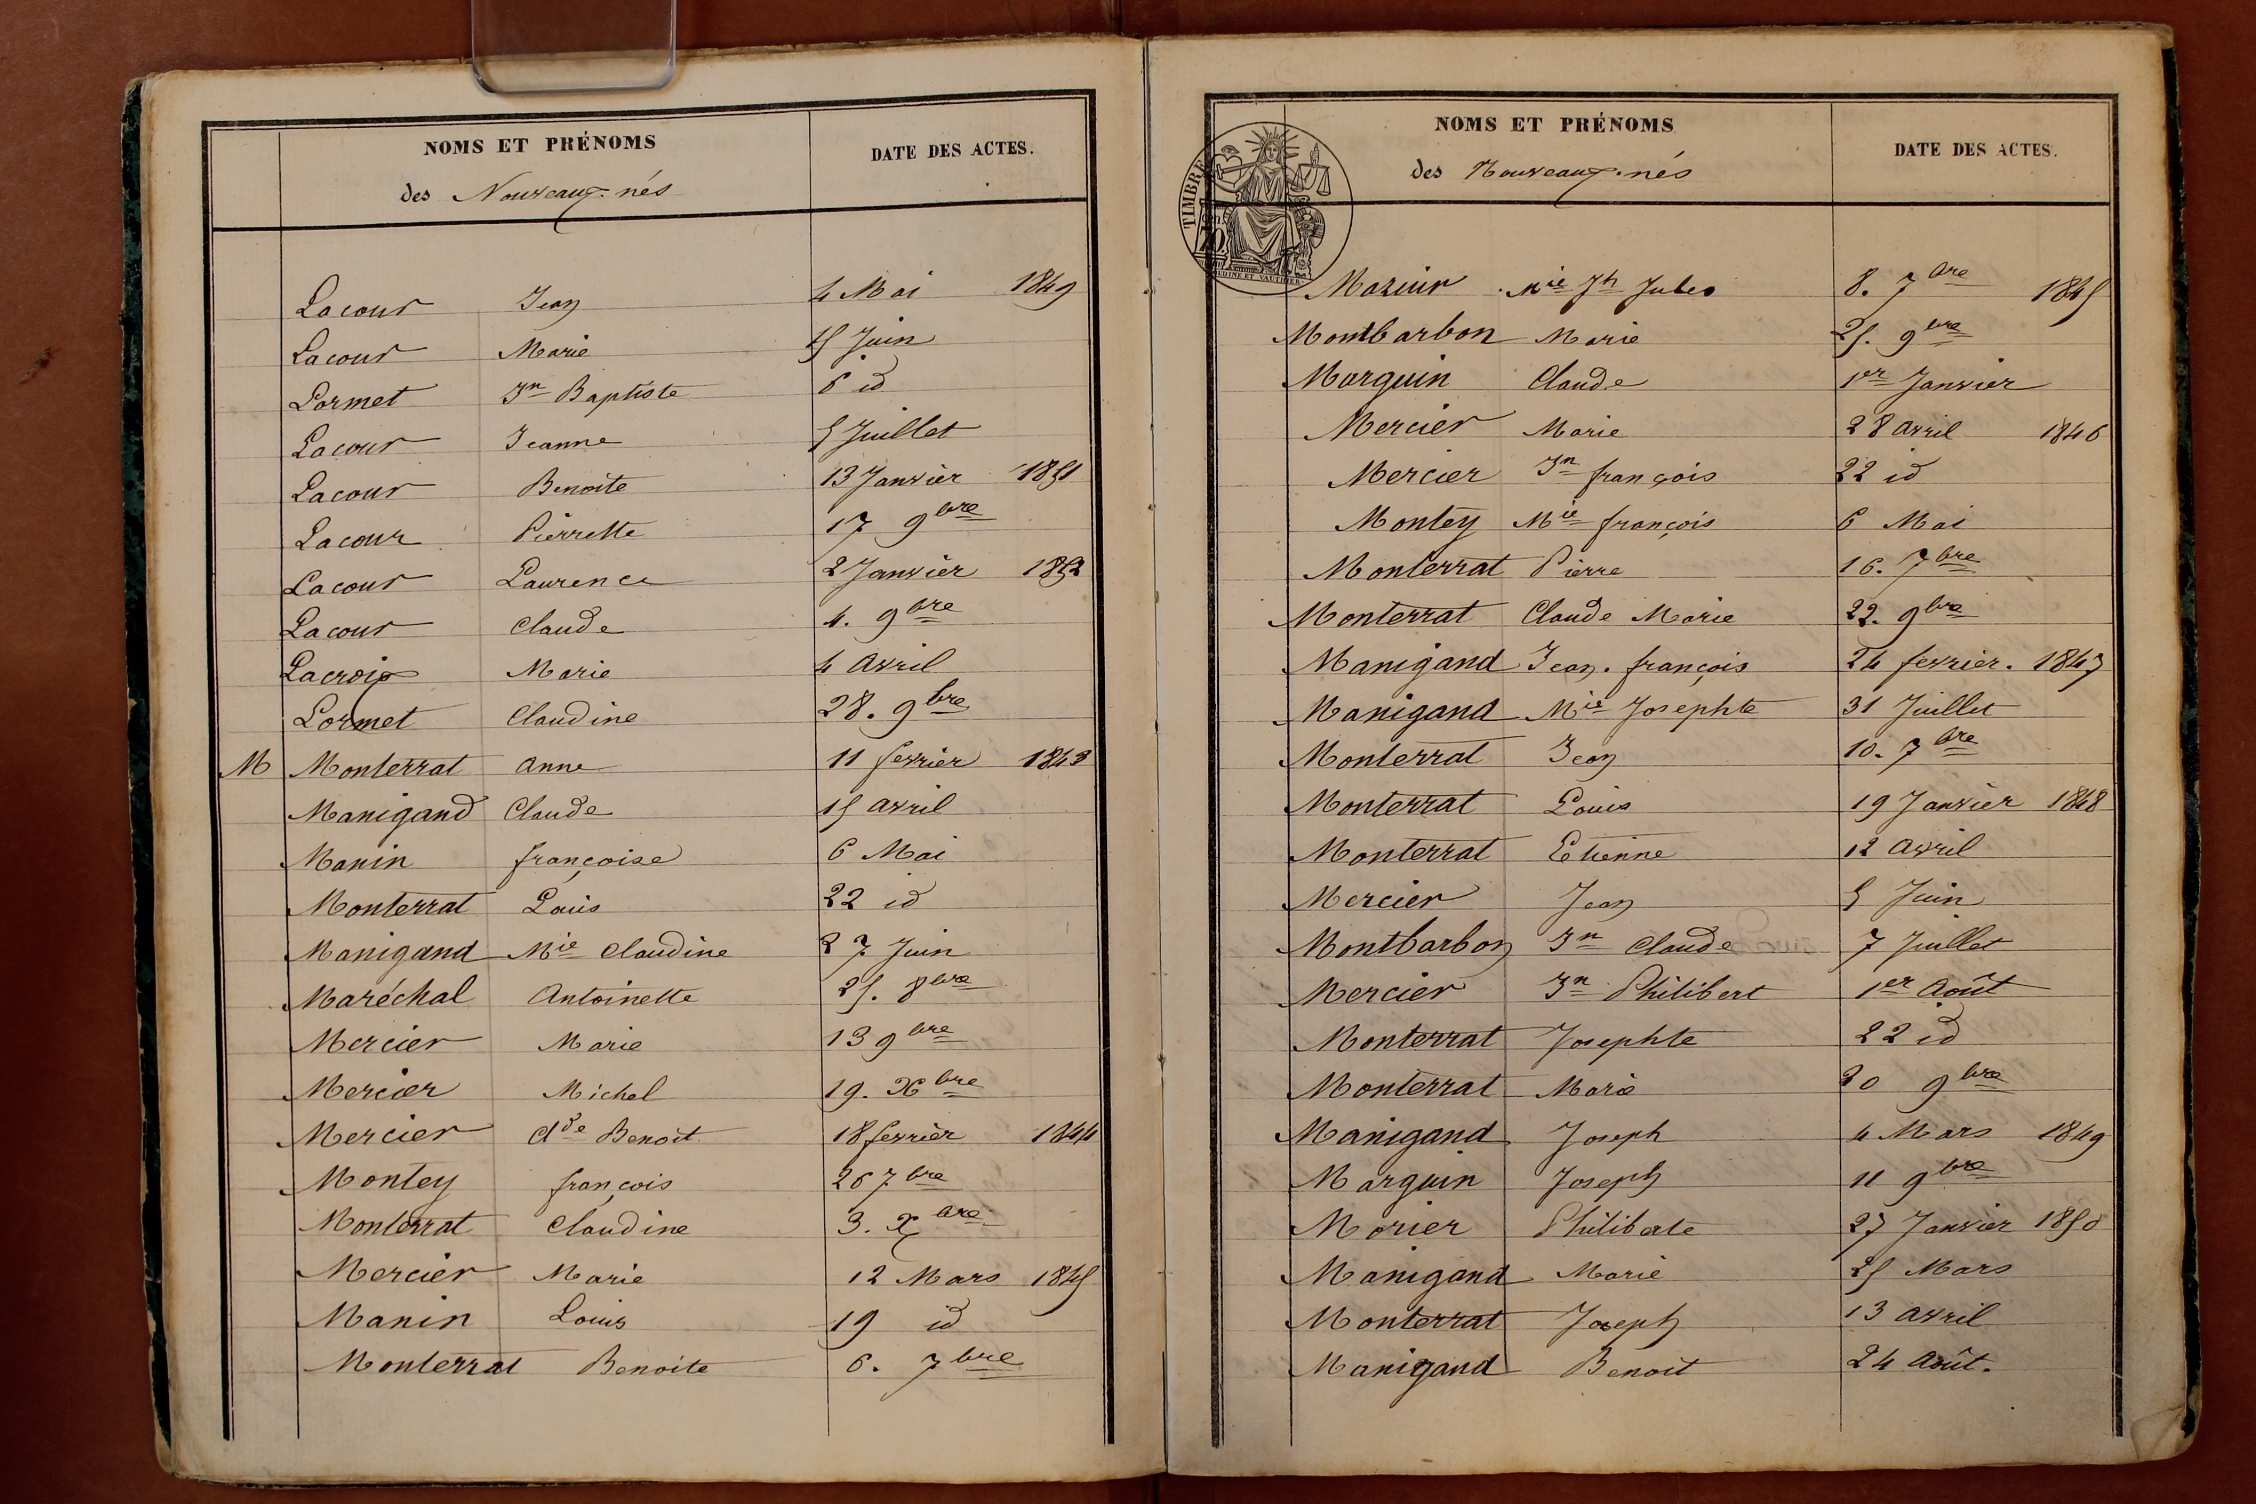 NOMS ET PRÉNOMS
des Nouveaux-nés
DATE DES ACTES.
Lacour Jean 4 Mai 1849
Lacour Marie 15 Juin
Lormet Jn Baptiste 6 id
Lacour Jeanne 5 Juillet
Lacour Benoite 13 Janvier 1851
Lacour Pierrette 17 9bre
Lacour Laurence 2 Janvier 1852
Lacour Claude 4. 9bre
Lacroix Marie 4 avril
Lormet Claudine 28. 9bre
M Monterrat Anne 11 fevrier 1843
Manigand Claude 15 avril
Manin françoise 6 Mai
Monterrat Louis 22 id
Manigand Mie Claudine 27 Juin
Maréchal Antoinette 25. 8bre
Mercier Marie 13 9bre
Mercier Michel 19. Xbre
Mercier Cde Benoit 18 fevrier 1844
Montey françois 26 7bre
Monterrat Claudine 3. Xbre
Mercier Marie 12 Mars 1845
Manin Louis 19 id
Monterrat Benoite 6. 7bre
TIMBRE
NOMS ET PRÉNOMS
des Nouveaux-nés
DATE DES ACTES.
Mie Jh Jules 8. 7bre 1845
Montbarbon Marie 25. 9bre
Marguin Claude 1er Janvier
Mercier Marie 28 avril 1846
Mercier Jn françois 22 id
Montey Mie françois 6 Mai
Monterrat Pierre 16. 7bre
Monterrat Claude Marie 22. 9bre
Manigand Jean. françois 24 fevrier. 1847
Manigand Mie Josephte 31 Juillet
Monterrat Jean 10. 7bre
Monterrat Louis 19 Janvier 1848
Monterrat Etienne 12 avril
Mercier Jean 5 Juin
Montbarbon Jn Claude 7 Juillet
Mercier Jn Philibert 1er Août
Monterrat Josephte 22 id
Monterrat Marie 20 9bre
Manigand Joseph 4 Mars 1849
Marguin Joseph 11 9bre
Morier Philiberte 27 Janvier 1850
Manigand Marie 25 Mars
Monterrat Joseph 13 avril
Manigand Benoit 24 Août.